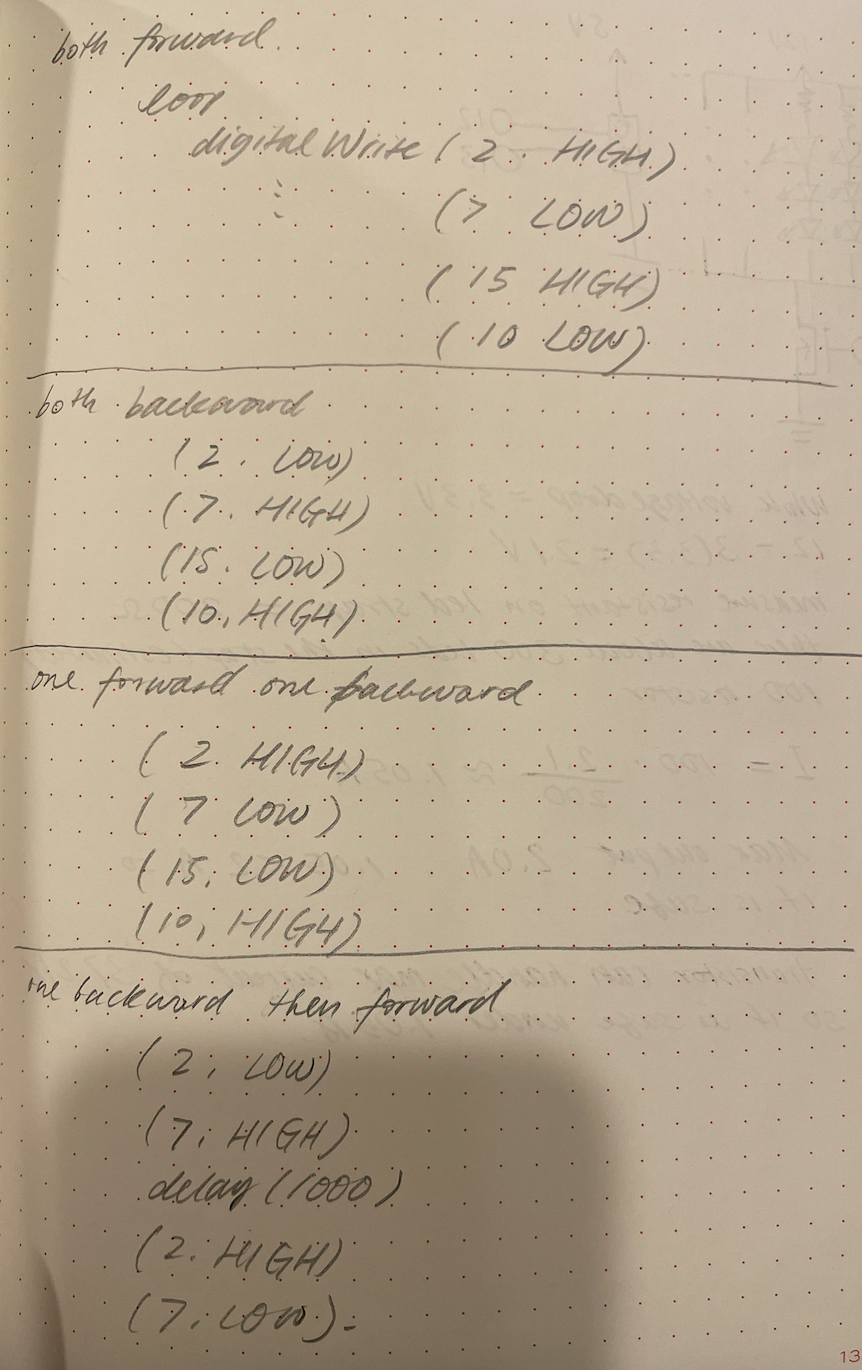 both forward
loop
digitalWrite ( 2. HIGH)
⋮ (7 LOW)
( 15 HIGH)
( 10 LOW)
both backward
( 2. LOW)
(7. HIGH)
(15. LOW)
(10, HIGH)
one forward one backward
( 2. HIGH)
( 7 LOW)
( 15, LOW)
(10, HIGH)
one backward then forward
( 2, LOW)
(7, HIGH)
delay (1000)
(2. HIGH)
(7, LOW).
13